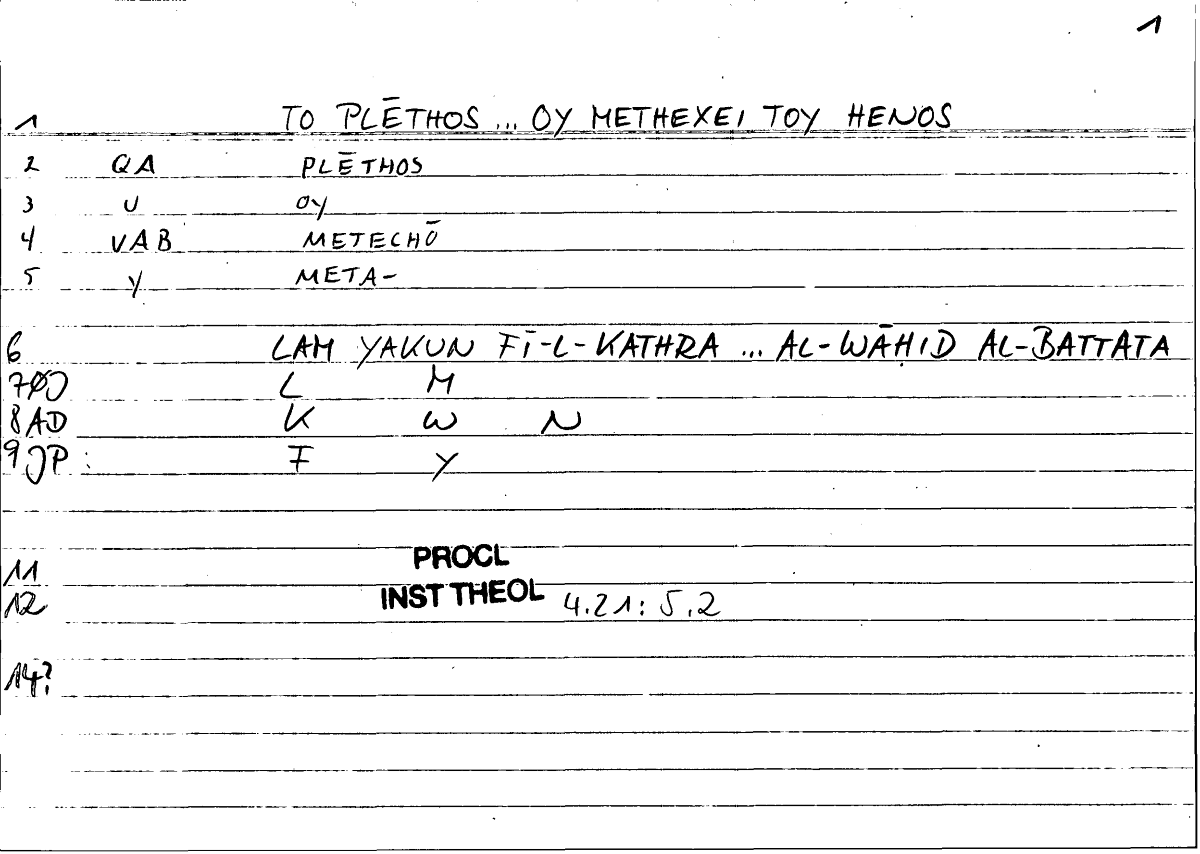 1
1 TO PLĒTHOS ... OY METHEXEI TOY HENOS
2 QA PLĒTHOS
3 U OY
4 VAB METECHŌ
5 Y META-
6 LAM YAKUN FĪ-L-KATHRA ... AL-WĀHID AL-BATTATA
7ØJ L M
8AD K W N
9JP : F Y
11 PROCL
12 INST THEOL 4.21: 5.2
14?